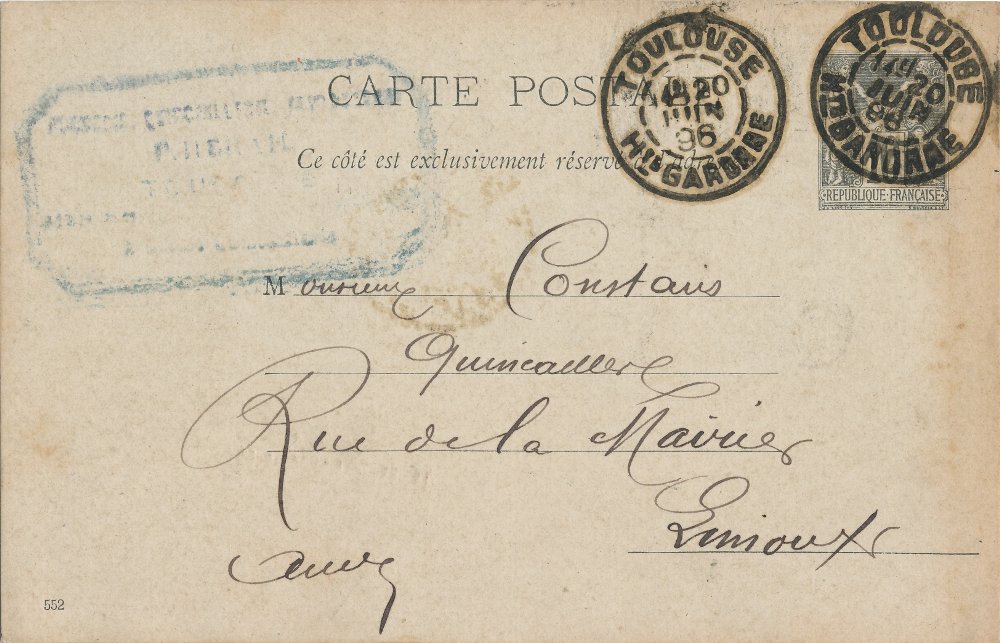 CARTE POSTALE
Ce côté est exclusivement réservé à l'adresse
TOULOUSE
20
JUIN
96
HTE GARONNE
TOULOUSE
20
JUIN
96
HTE GARONNE
REPUBLIQUE FRANÇAISE
Monsieur Constans
Quincaillere
Rue de la Mairie
Limoux
Aude
552